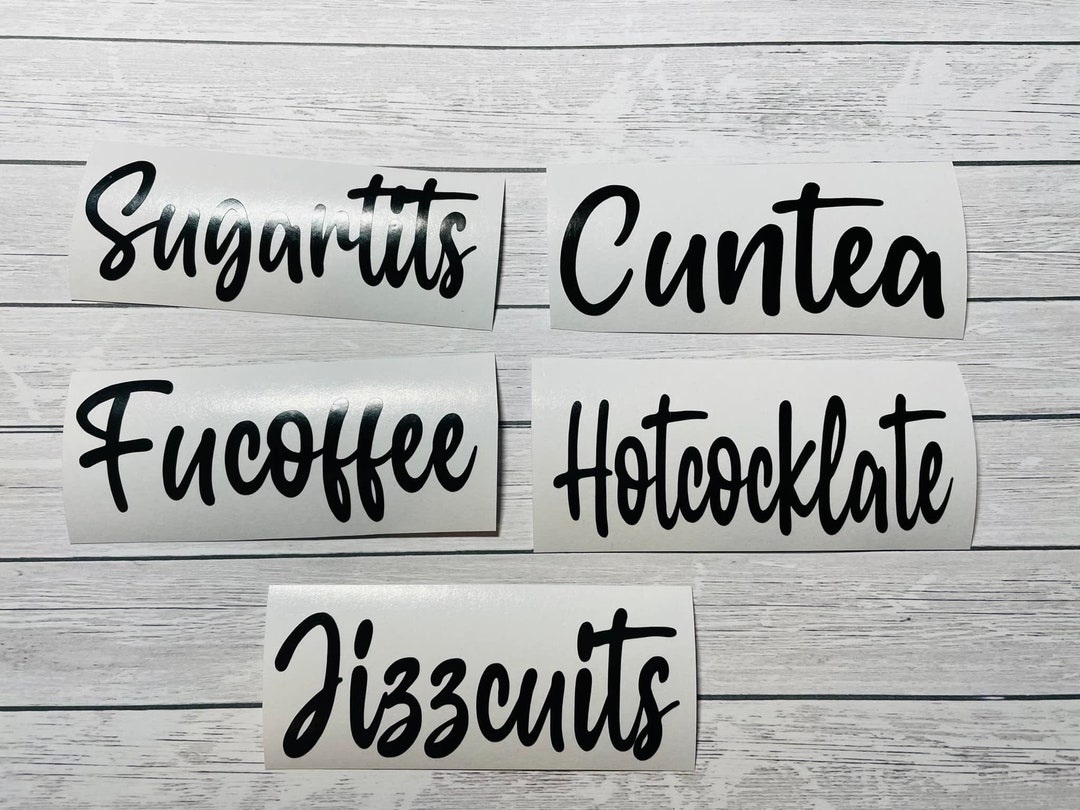 Sugartits
Cuntea
Fucoffee
Hotcocklate
Jizzcuits